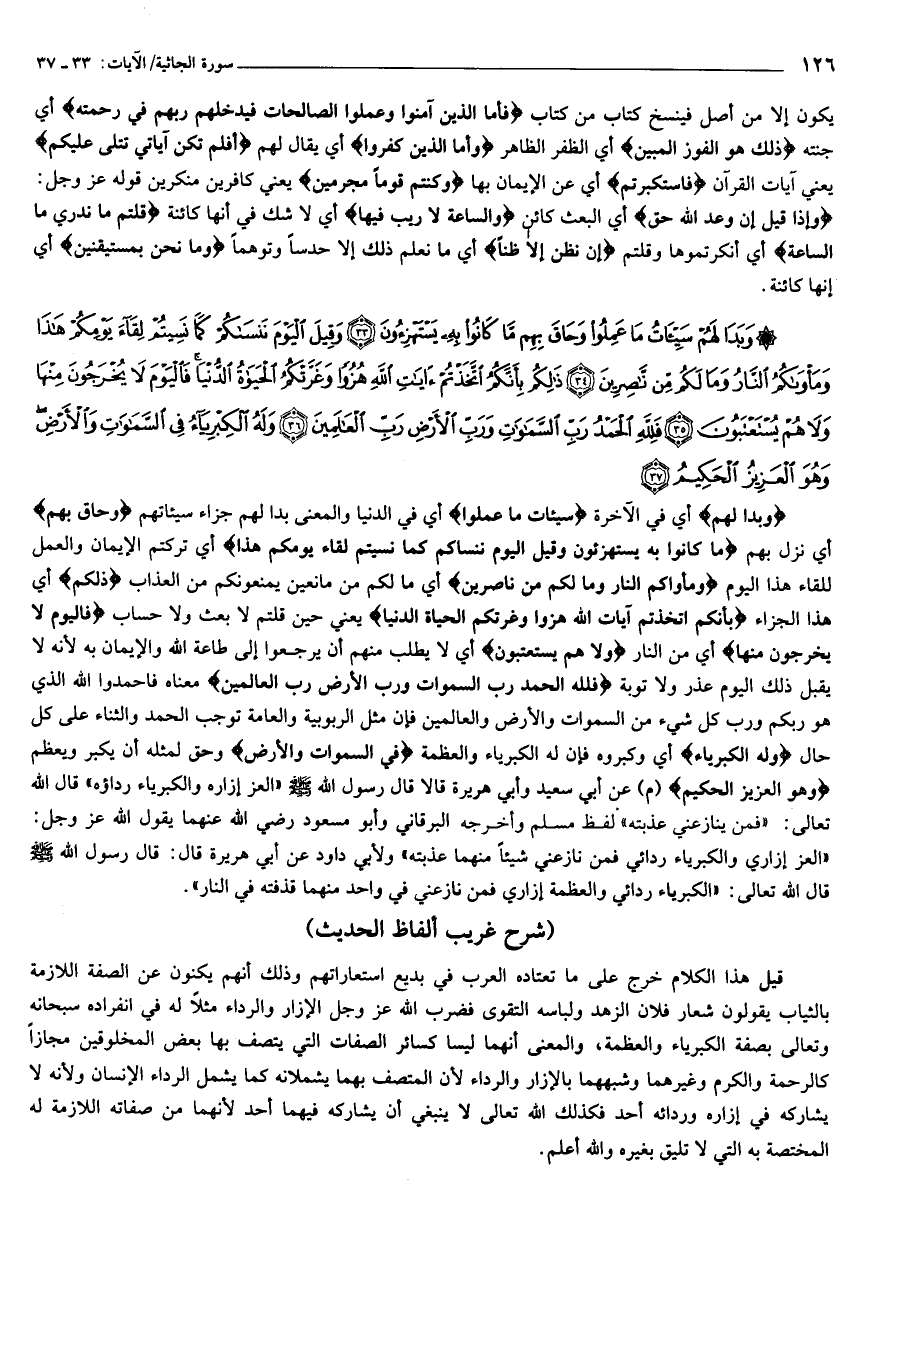 ١٢٦ سورة الجاثية/ الآيات: ٣٣ ـ ٣٧
يكون إلا من أصل فينسخ كتاب من كتاب ﴿فأما الذين آمنوا وعملوا الصالحات فيدخلهم ربهم في رحمته﴾ أي
جنته ﴿ذلك هو الفوز المبين﴾ أي الظفر الظاهر ﴿وأما الذين كفروا﴾ أي يقال لهم ﴿أفلم تكن آياتي تتلى عليكم﴾
يعني آيات القرآن ﴿فاستكبرتم﴾ أي عن الإيمان بها ﴿وكنتم قوماً مجرمين﴾ يعني كافرين منكرين قوله عز وجل:
﴿وإذا قيل إن وعد الله حق﴾ أي البعث كائن ﴿والساعة لا ريب فيها﴾ أي لا شك في أنها كائنة ﴿قلتم ما ندري ما
الساعة﴾ أي أنكرتموها وقلتم ﴿إن نظن إلا ظناً﴾ أي ما نعلم ذلك إلا حدساً وتوهماً ﴿وما نحن بمستيقنين﴾ أي
إنها كائنة.
وَبَدَا لَهُمْ سَيِّئَاتُ مَا عَمِلُوا۟ وَحَاقَ بِهِم مَّا كَانُوا۟ بِهِۦ يَسْتَهْزِءُونَ ٣٣ وَقِيلَ ٱلْيَوْمَ نَنسَىٰكُمْ كَمَا نَسِيتُمْ لِقَآءَ يَوْمِكُمْ هَٰذَا
وَمَأْوَىٰكُمُ ٱلنَّارُ وَمَا لَكُم مِّن نَّٰصِرِينَ ٣٤ ذَٰلِكُم بِأَنَّكُمُ ٱتَّخَذْتُمْ ءَايَٰتِ ٱللَّهِ هُزُوًا وَغَرَّتْكُمُ ٱلْحَيَوٰةُ ٱلدُّنْيَا ۚ فَٱلْيَوْمَ لَا يُخْرَجُونَ مِنْهَا
وَلَا هُمْ يُسْتَعْتَبُونَ ٣٥ فَلِلَّهِ ٱلْحَمْدُ رَبِّ ٱلسَّمَٰوَٰتِ وَرَبِّ ٱلْأَرْضِ رَبِّ ٱلْعَٰلَمِينَ ٣٦ وَلَهُ ٱلْكِبْرِيَآءُ فِى ٱلسَّمَٰوَٰتِ وَٱلْأَرْضِ ۖ
وَهُوَ ٱلْعَزِيزُ ٱلْحَكِيمُ ٣٧
﴿وبدا لهم﴾ أي في الآخرة ﴿سيئات ما عملوا﴾ أي في الدنيا والمعنى بدا لهم جزاء سيئاتهم ﴿وحاق بهم﴾
أي نزل بهم ﴿ما كانوا به يستهزئون وقيل اليوم ننساكم كما نسيتم لقاء يومكم هذا﴾ أي تركتم الإيمان والعمل
للقاء هذا اليوم ﴿ومأواكم النار وما لكم من ناصرين﴾ أي ما لكم من مانعين يمنعونكم من العذاب ﴿ذلكم﴾ أي
هذا الجزاء ﴿بأنكم اتخذتم آيات الله هزوا وغرتكم الحياة الدنيا﴾ يعني حين قلتم لا بعث ولا حساب ﴿فاليوم لا
يخرجون منها﴾ أي من النار ﴿ولا هم يستعتبون﴾ أي لا يطلب منهم أن يرجعوا إلى طاعة الله والإيمان به لأنه لا
يقبل ذلك اليوم عذر ولا توبة ﴿فلله الحمد رب السموات ورب الأرض رب العالمين﴾ معناه فاحمدوا الله الذي
هو ربكم ورب كل شيء من السموات والأرض والعالمين فإن مثل الربوبية والعامة توجب الحمد والثناء على كل
حال ﴿وله الكبرياء﴾ أي وكبروه فإن له الكبرياء والعظمة ﴿في السموات والأرض﴾ وحق لمثله أن يكبر ويعظم
﴿وهو العزيز الحكيم﴾ (م) عن أبي سعيد وأبي هريرة قالا قال رسول الله ﷺ «العز إزاره والكبرياء رداؤه» قال الله
تعالى: «فمن ينازعني عذبته» لفظ مسلم وأخرجه البرقاني وأبو مسعود رضي الله عنهما يقول الله عز وجل:
«العز إزاري والكبرياء ردائي فمن نازعني شيئاً منهما عذبته» ولأبي داود عن أبي هريرة قال: قال رسول الله ﷺ
قال الله تعالى: «الكبرياء ردائي والعظمة إزاري فمن نازعني في واحد منهما قذفته في النار».
(شرح غريب ألفاظ الحديث)
قيل هذا الكلام خرج على ما تعتاده العرب في بديع استعاراتهم وذلك أنهم يكنون عن الصفة اللازمة
بالثياب يقولون شعار فلان الزهد ولباسه التقوى فضرب الله عز وجل الإزار والرداء مثلاً له في انفراده سبحانه
وتعالى بصفة الكبرياء والعظمة، والمعنى أنهما ليسا كسائر الصفات التي يتصف بها بعض المخلوقين مجازاً
كالرحمة والكرم وغيرهما وشبههما بالإزار والرداء لأن المتصف بهما يشملانه كما يشمل الرداء الإنسان ولأنه لا
يشاركه في إزاره وردائه أحد فكذلك الله تعالى لا ينبغي أن يشاركه فيهما أحد لأنهما من صفاته اللازمة له
المختصة به التي لا تليق بغيره والله أعلم.